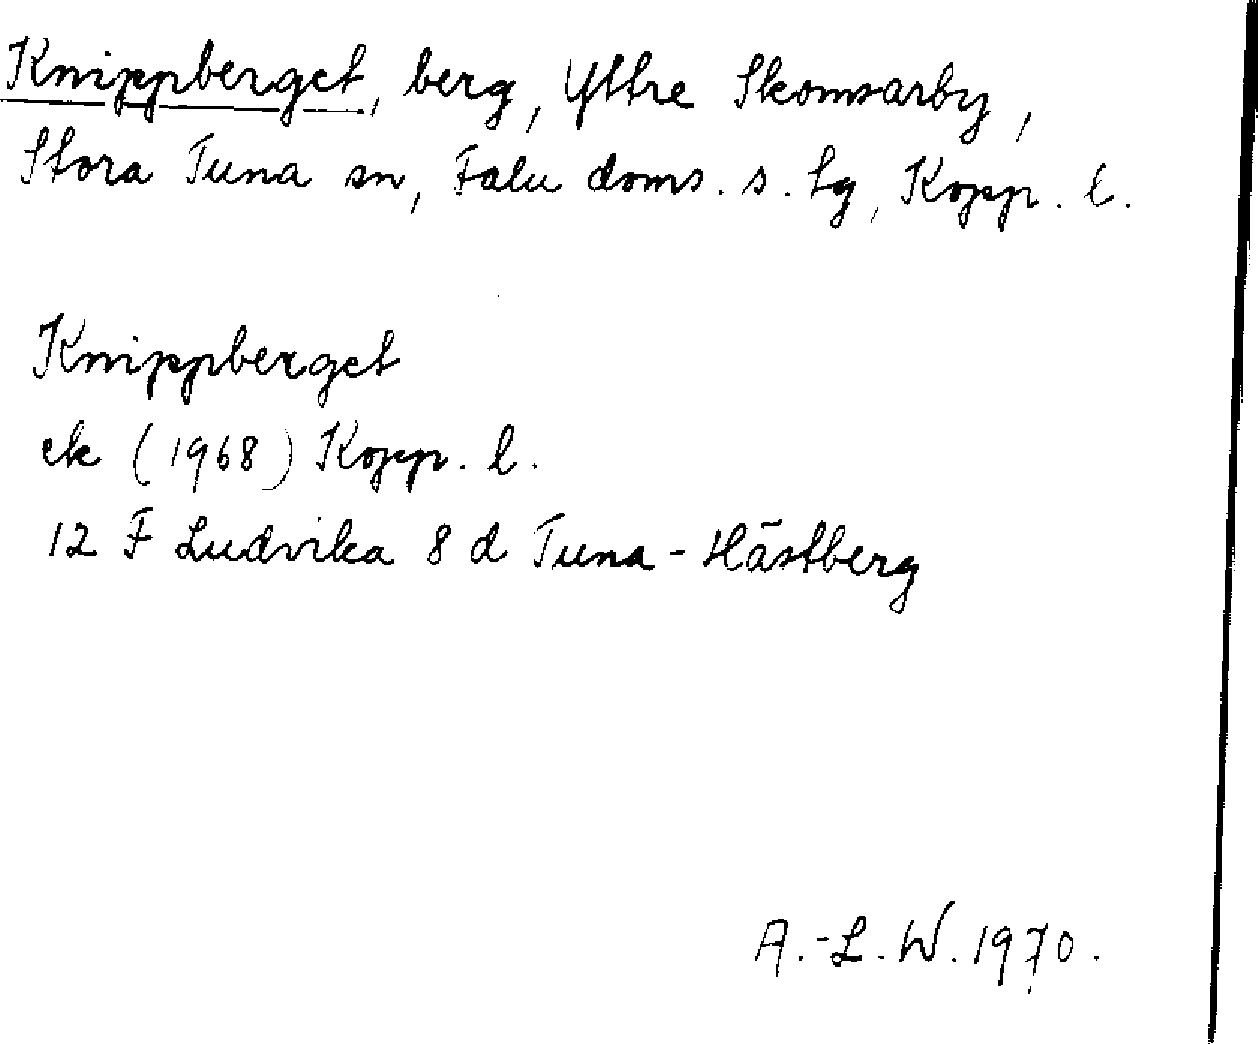 Knippberget, berg, Yttre Skomsarby,
Stora Tuna sn, Falu doms. s. tg, Kopp. l.
Knippberget
ek (1968) Kopp. l.
12 F Ludvika 8 d Tuna-Hästberg
A.-L. W. 1970.